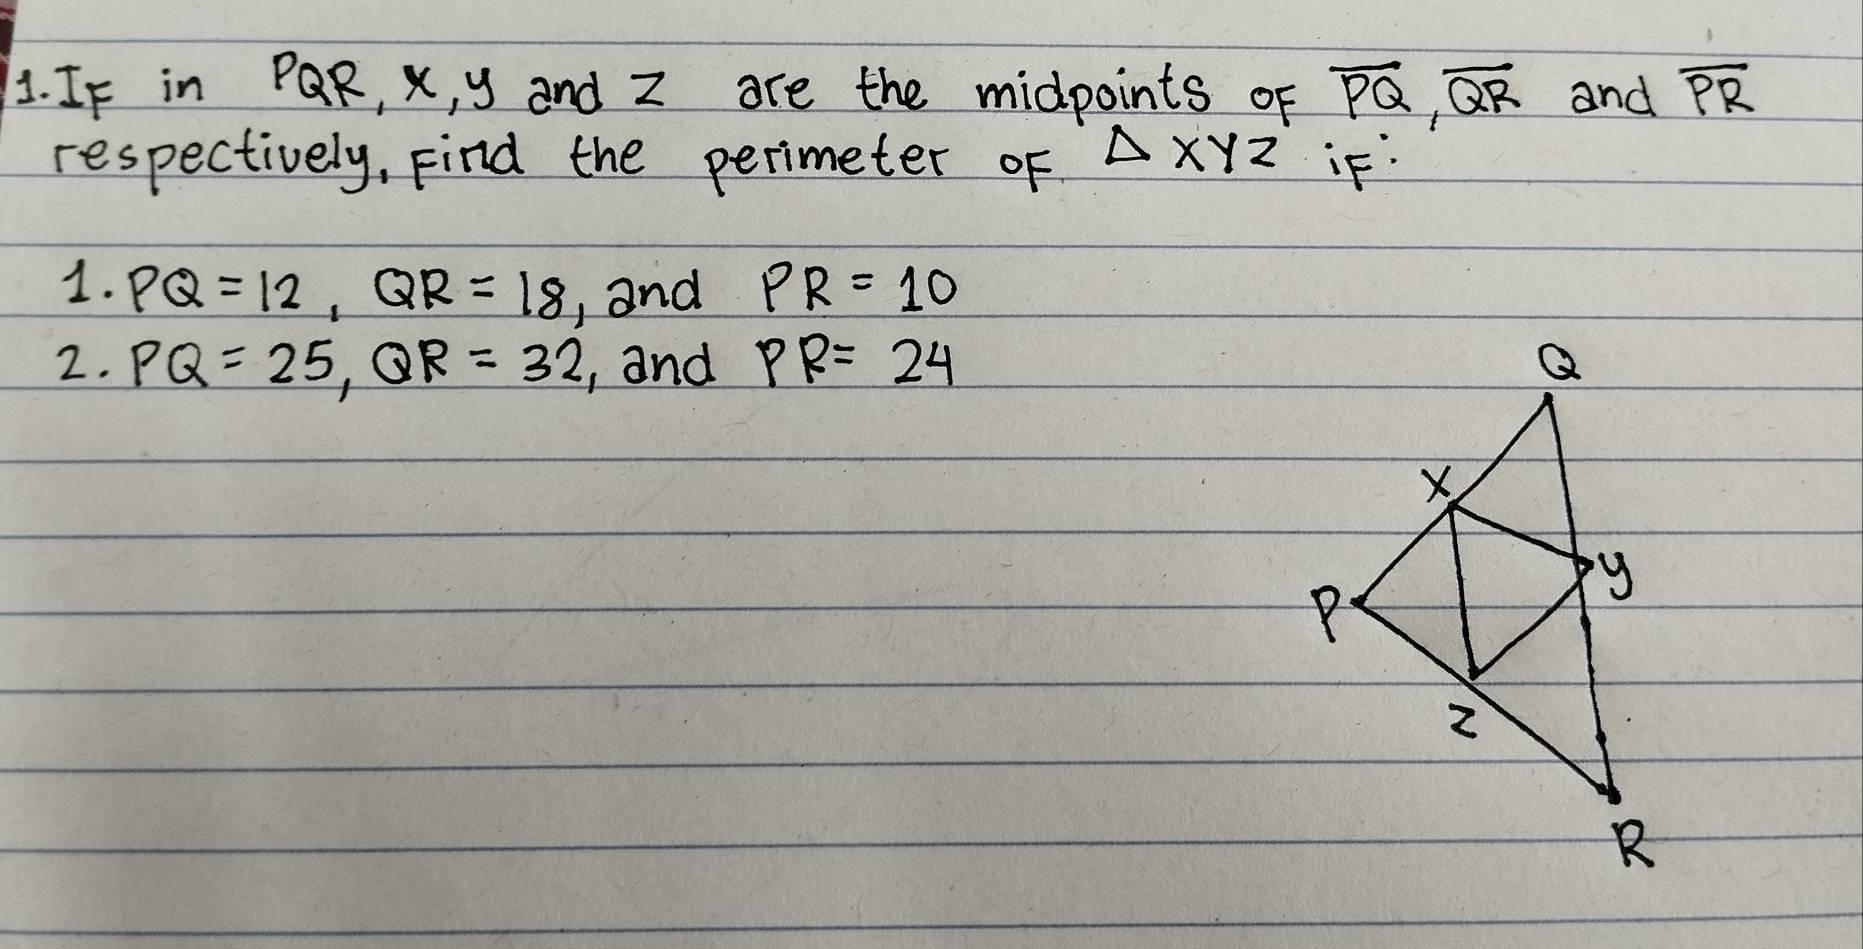 1. IF in PQR, x, y and z are the midpoints of P̅Q̅, Q̅R̅ and P̅R̅
respectively, Find the perimeter of Δ XYZ if:
1. PQ = 12, QR = 18, and PR = 10
2. PQ = 25, QR = 32, and PR = 24
Q
X
y
P
Z
R